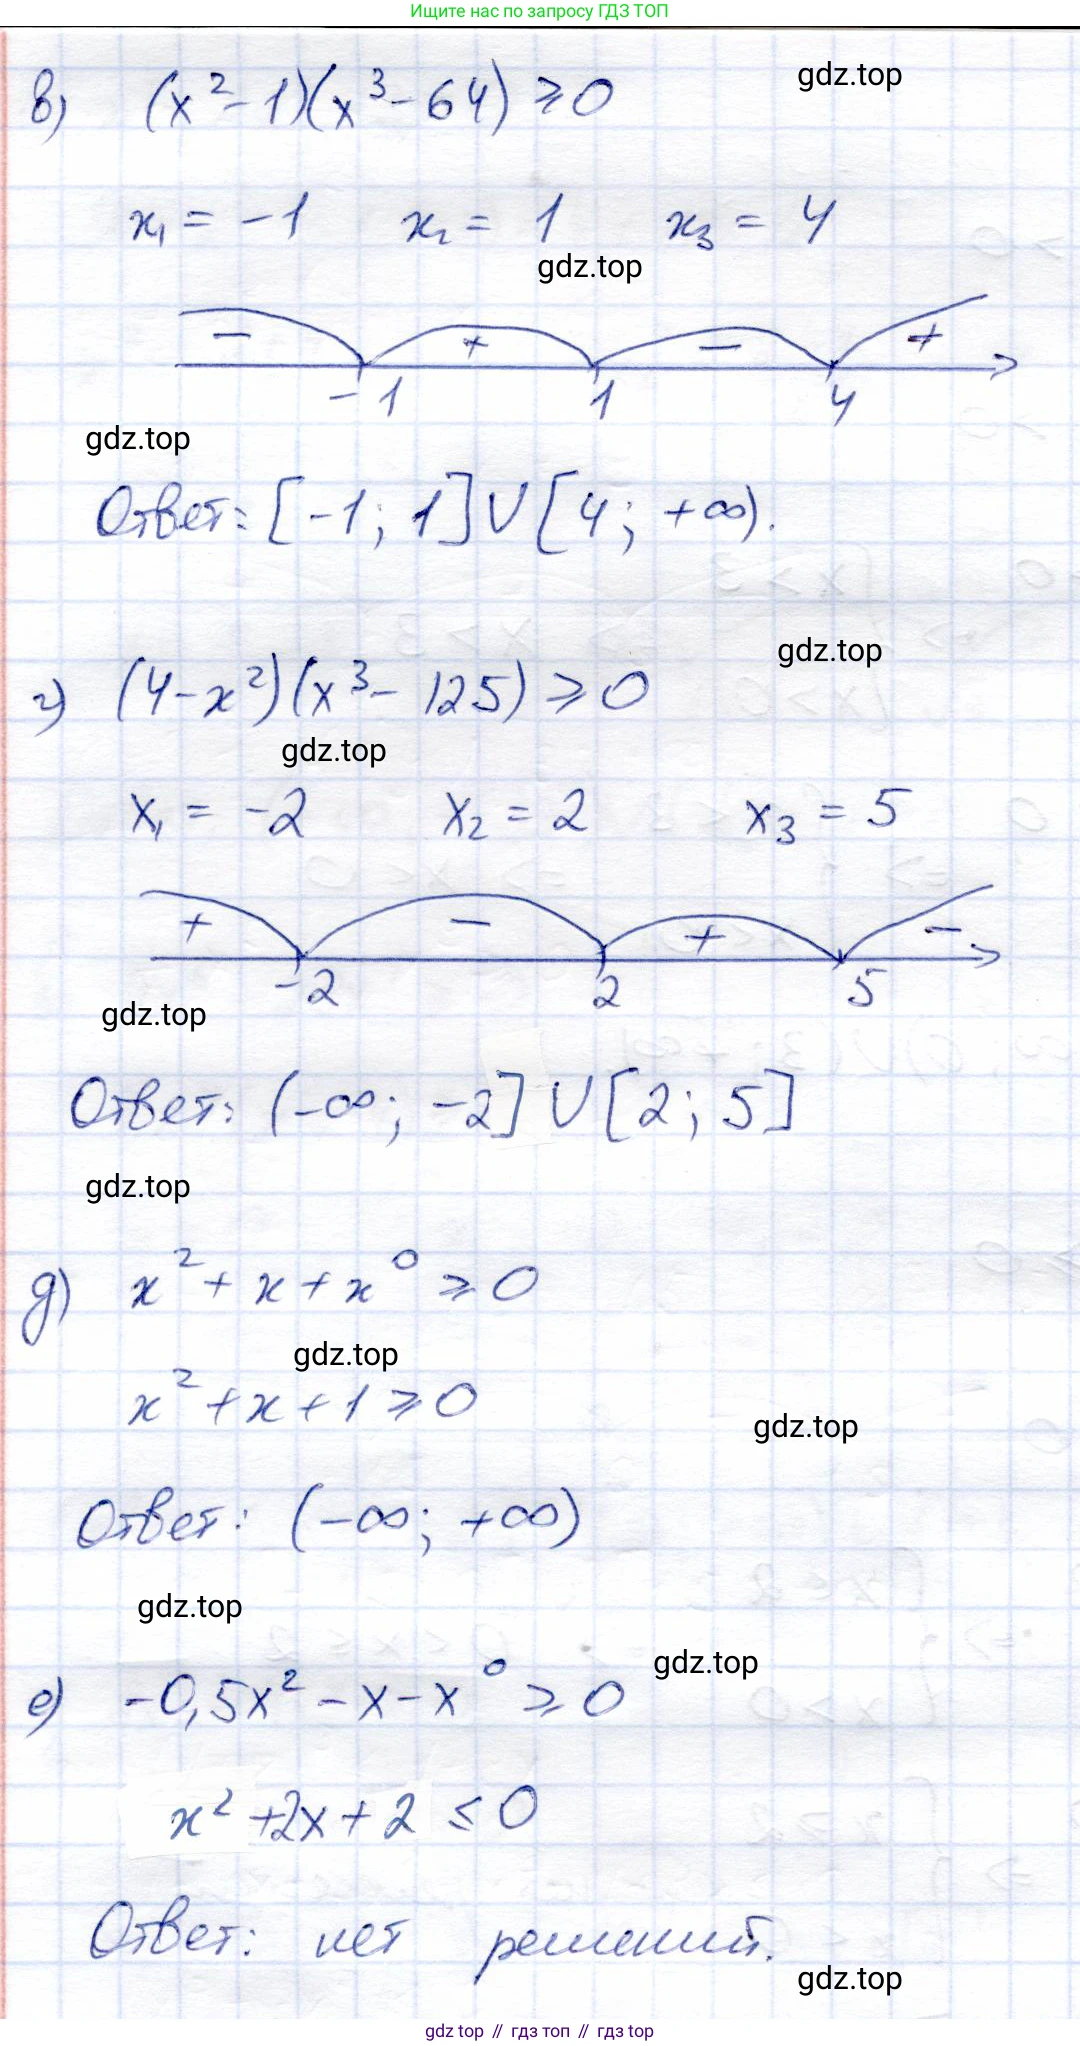 Ищите нас по запросу ГДЗ ТОП
в) (x²-1)(x³-64) ≥ 0
gdz.top
x₁ = -1 x₂ = 1 x₃ = 4
gdz.top
- + - +
-1 1 4
gdz.top
Ответ: [-1; 1] ∪ [4; +∞).
gdz.top
г) (4-x²)(x³-125) ≥ 0
gdz.top
x₁ = -2 x₂ = 2 x₃ = 5
+ - + -
-2 2 5
gdz.top
Ответ: (-∞; -2] ∪ [2; 5]
gdz.top
д) x² + x + x⁰ ≥ 0
gdz.top
x² + x + 1 ≥ 0
gdz.top
Ответ: (-∞; +∞)
gdz.top
gdz.top
е) -0,5x² - x - x⁰ ≥ 0
x² + 2x + 2 ≤ 0
Ответ: нет решений.
gdz.top
gdz top // гдз топ // гдз top